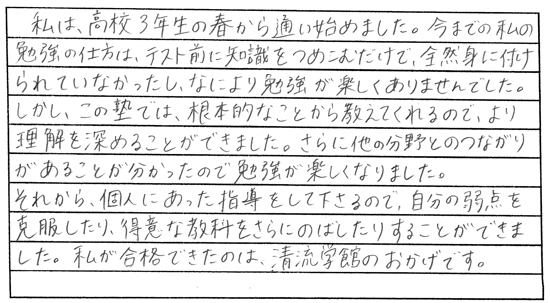 私は、高校3年生の春から通い始めました。今までの私の
勉強の仕方は、テスト前に知識をつめこむだけで、全然身に付け
られていなかったし、なにより勉強が楽しくありませんでした。
しかし、この塾では、根本的なことから教えてくれるので、より
理解を深めることができました。さらに他の分野とのつながり
があることが分かったので勉強が楽しくなりました。
それから、個人にあった指導をして下さるので、自分の弱点を
克服したり、得意な教科をさらにのばしたりすることができま
した。私が合格できたのは、清流学館のおかげです。